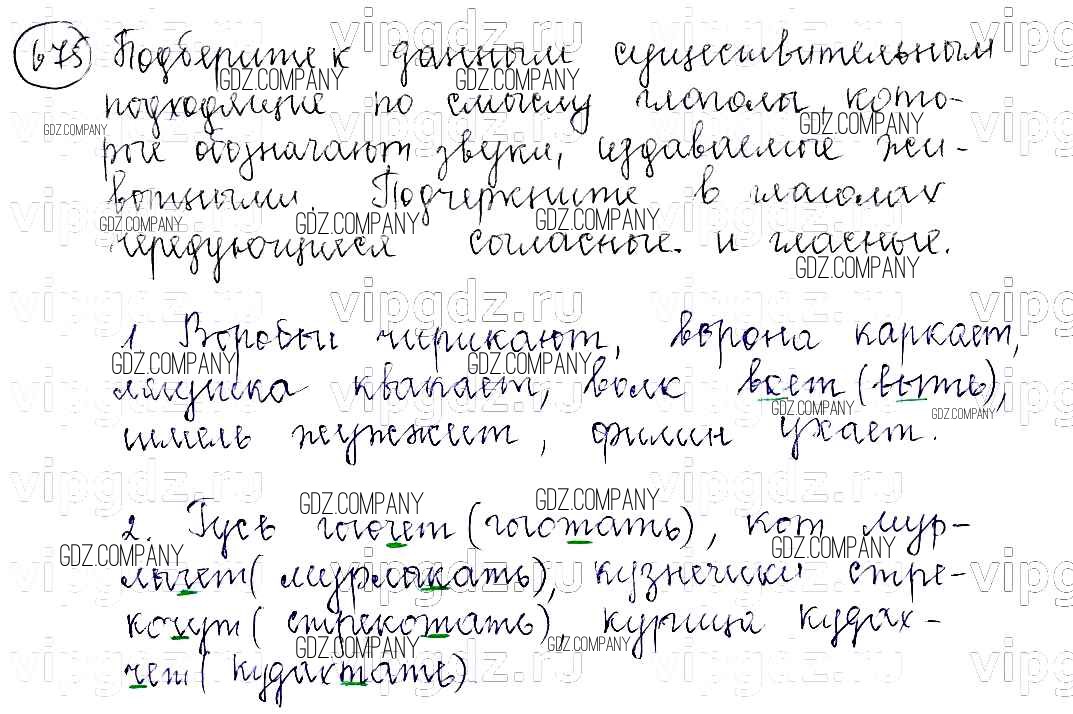 675 Подберите к данным существительным
подходящие по смыслу глаголы, кото-
рые обозначают звуки, издаваемые жи-
вотными. Подчеркните в глаголах
чередующиеся согласные и гласные.
1 Воробьи чирикают, ворона каркает,
лягушка квакает, волк воет (выть),
шмель жужжит, филин ухает.
2. Гусь гогочет (гоготать), кот мур-
лычет (мурлыкать), кузнечики стре-
кочут (стрекотать), курица кудах-
чет (кудахтать)
vipgdz.ru
GDZ.COMPANY